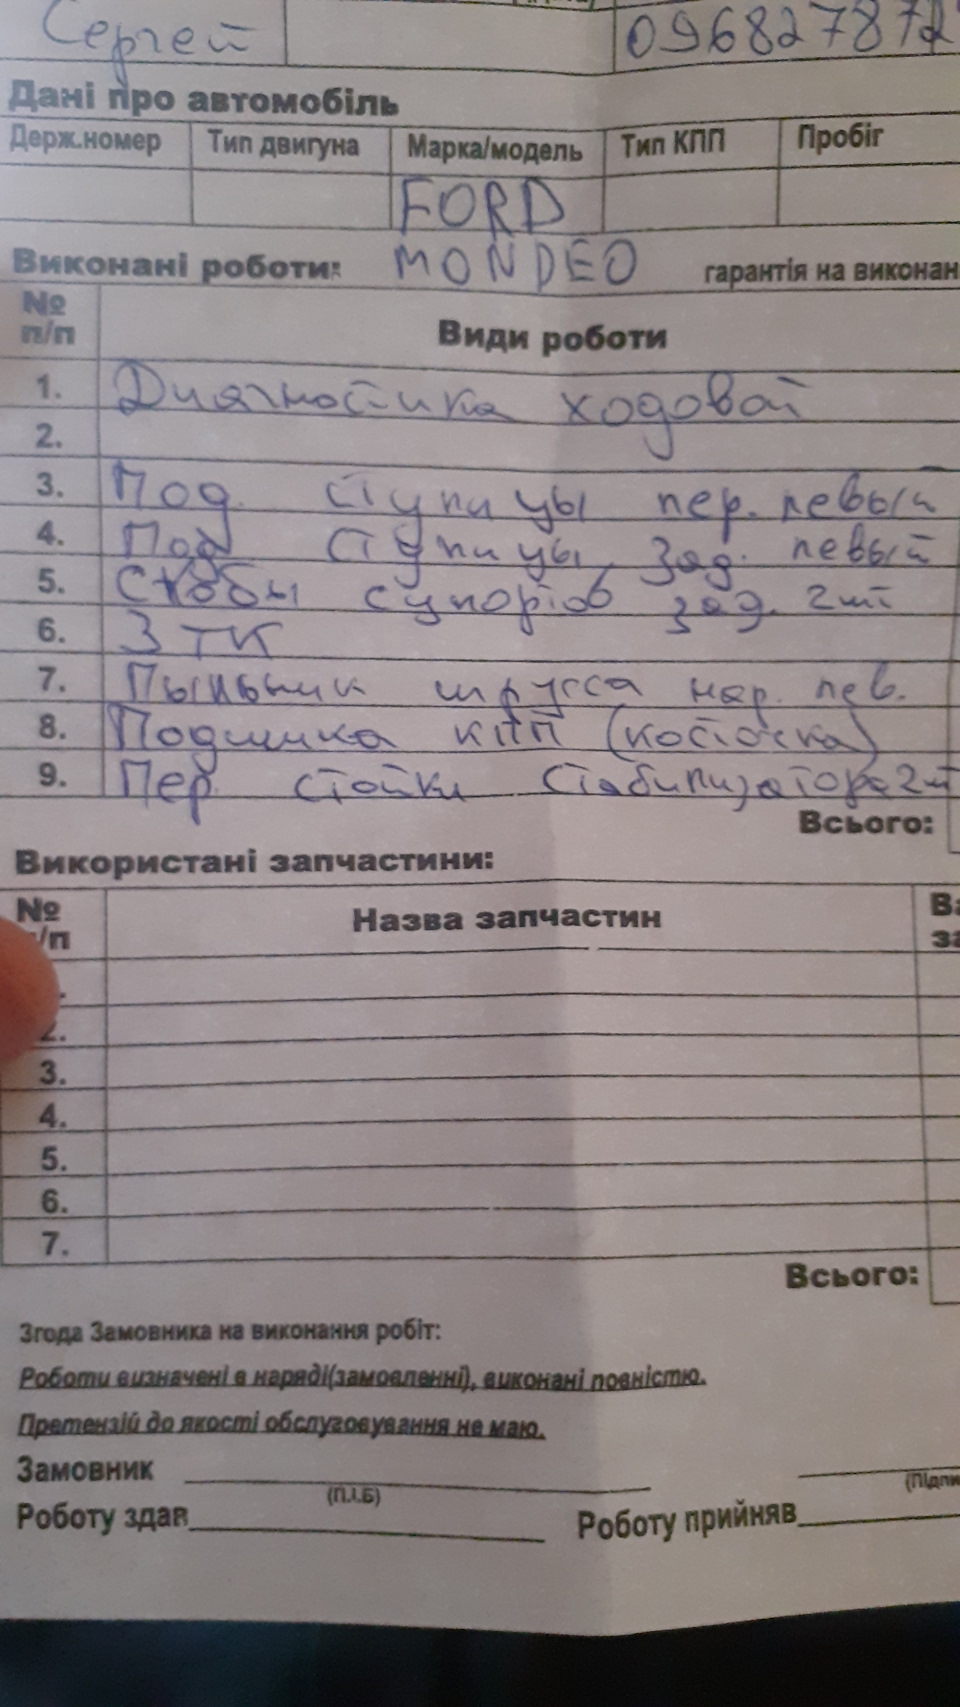 Сергей 0968278727
Дані про автомобіль
Держ.номер Тип двигуна Марка/модель Тип КПП Пробіг
FORD
Виконані роботи: MONDEO гарантія на виконан
№ п/п Види роботи
1. Диагностика ходовой
2.
3. Под. ступицы пер. левый
4. Под ступицы зад. левый
5. Скобы супортов зад. 2шт
6. 3 ТК
7. Пыльник шрусса нар. лев.
8. Подушка КПП (косточка)
9. Пер. стойки стабилизатора 2шт
Всього:
Використані запчастини:
№ /п Назва запчастин
2.
3.
4.
5.
6.
7.
Всього:
Згода Замовника на виконання робіт:
Роботи визначені в наряді(замовленні), виконані повністю.
Претензій до якості обслуговування не маю.
Замовник
(П.І.Б) (Підпи
Роботу здав Роботу прийняв